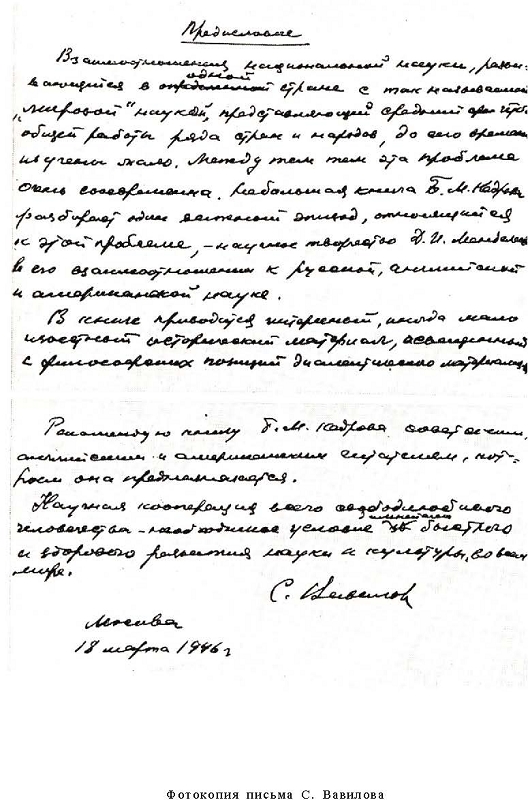 Предисловие
Взаимоотношения национальной науки, разви-
одной
вающейся в определенной стране с так называемой
„мировой" наукой, представляющей средний
общей работы ряда стран и народов, до сего времени
изучены мало. Между тем тем эта проблема
очень современна. Небольшая книга Б. М. Кедрова
разбирает один важный эпизод, относящийся
к этой проблеме, – научное творчество Д. И. Менделеева
в его взаимоотношении к русской, английской
и американской науке.
В книге приводится интересный, иногда мало
известный исторический материал, освещенный
с философских позиций диалектического материализма
Рекомендую книгу Б. М. Кедрова советским,
английским и американским читателям, кот-
рым она предназначается.
Научная кооперация всего свободолюбивого
человечества – необходимое условие быстрого
и здорового развития науки и культуры, во всем
мире.
С. Вавилов
Москва
18 марта 1946 г
Фотокопия письма С. Вавилова